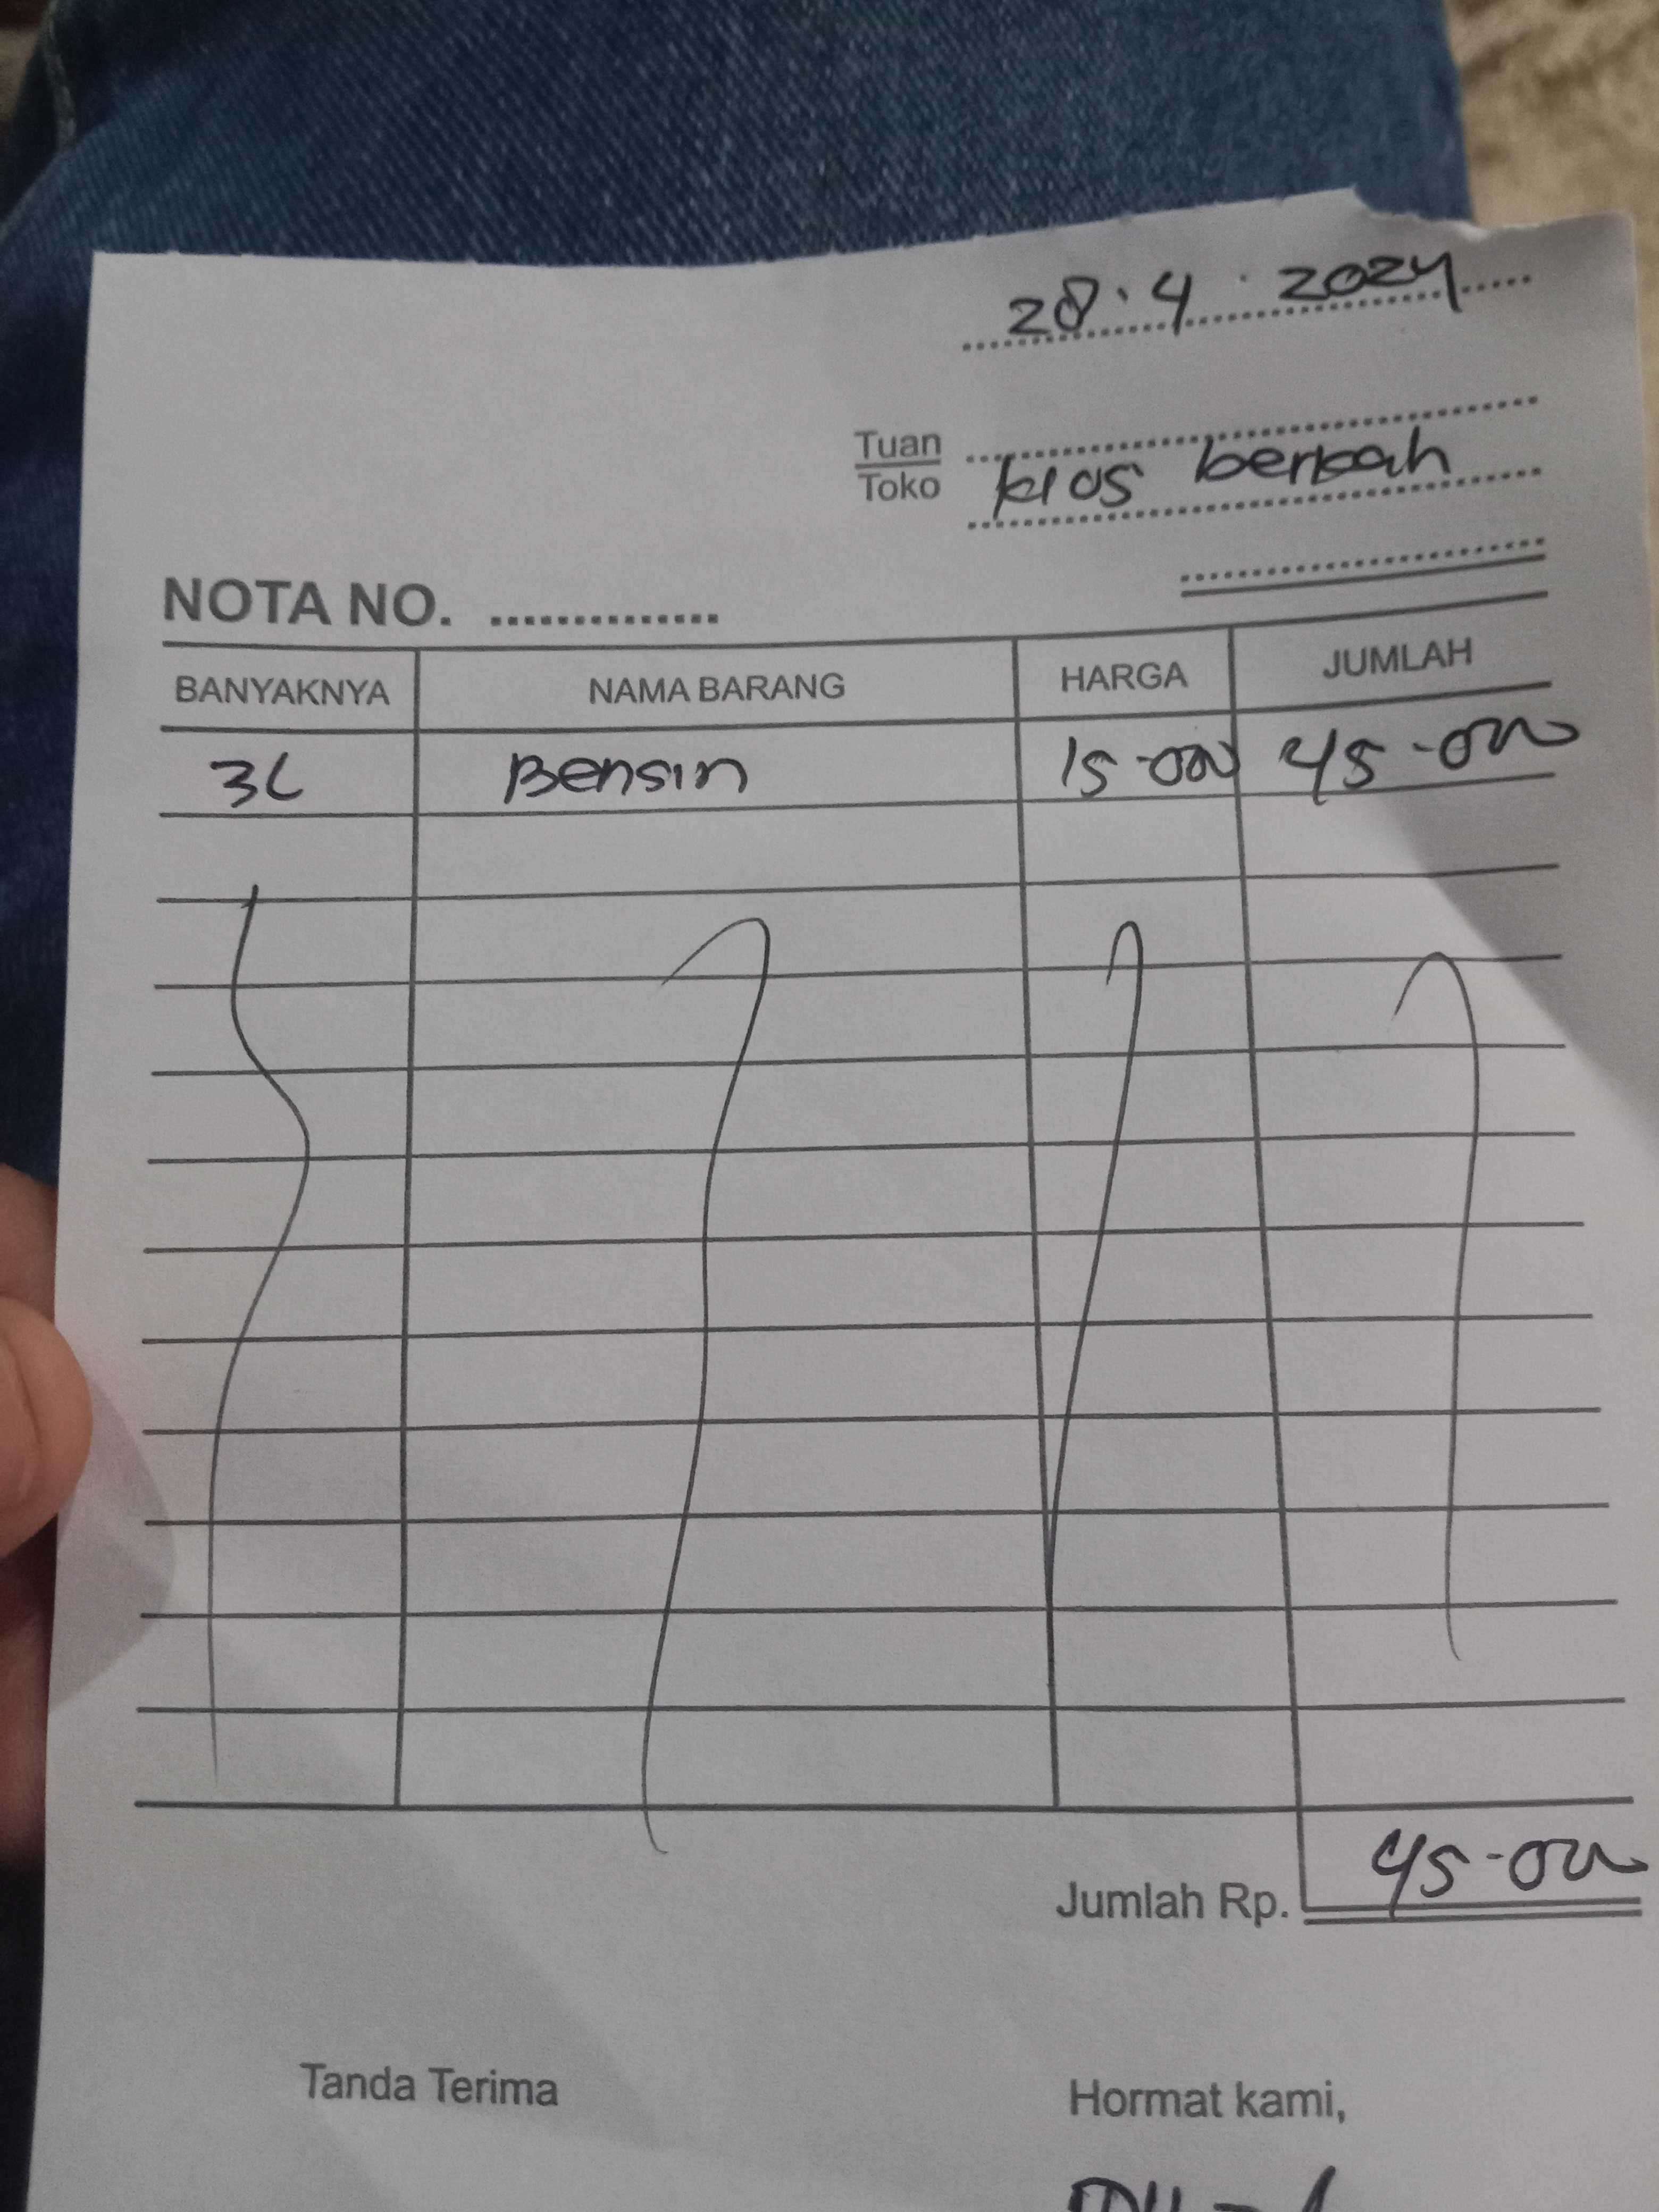 28.4.2024
Tuan
Toko kios berkah
NOTA NO. ..............
BANYAKNYA NAMA BARANG HARGA JUMLAH
3L Bensin 15-000 45-000
Jumlah Rp. 45-000
Tanda Terima Hormat kami,